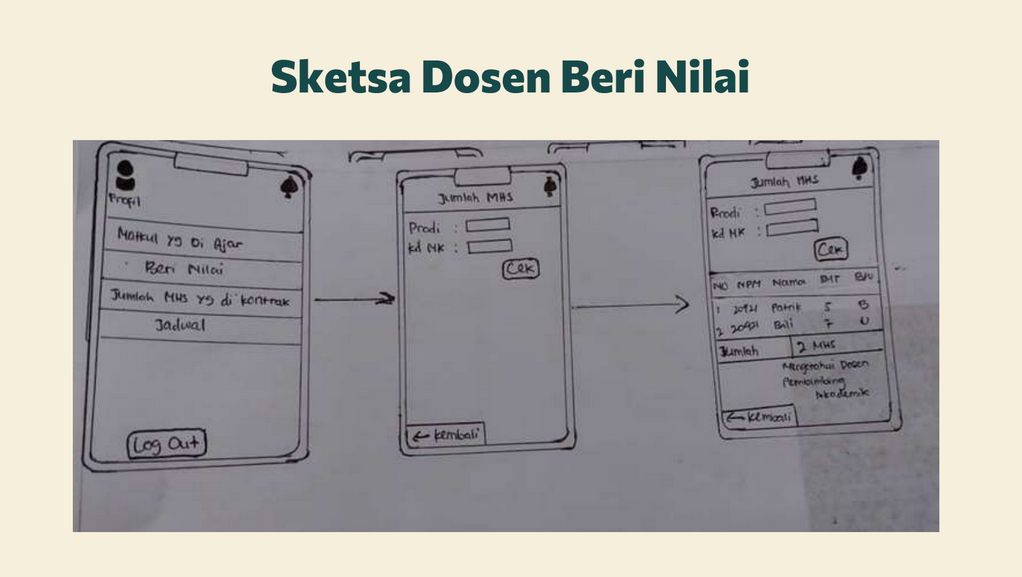 Sketsa Dosen Beri Nilai
Profil
Matkul yg Di Ajar
Beri Nilai
Jumlah MHS yg di kontrak
Jadwal
Log Out
Jumlah MHS
Prodi :
Kd MK :
Cek
← Kembali
Jumlah MHS
Prodi :
Kd MK :
Cek
NO NPM Nama SMT B/U
1 20921 Patrik 5 B
2 20921 7 U
Jumlah 2 MHS
Mengetahui Dosen
Pembimbing
Akademik
← Kembali